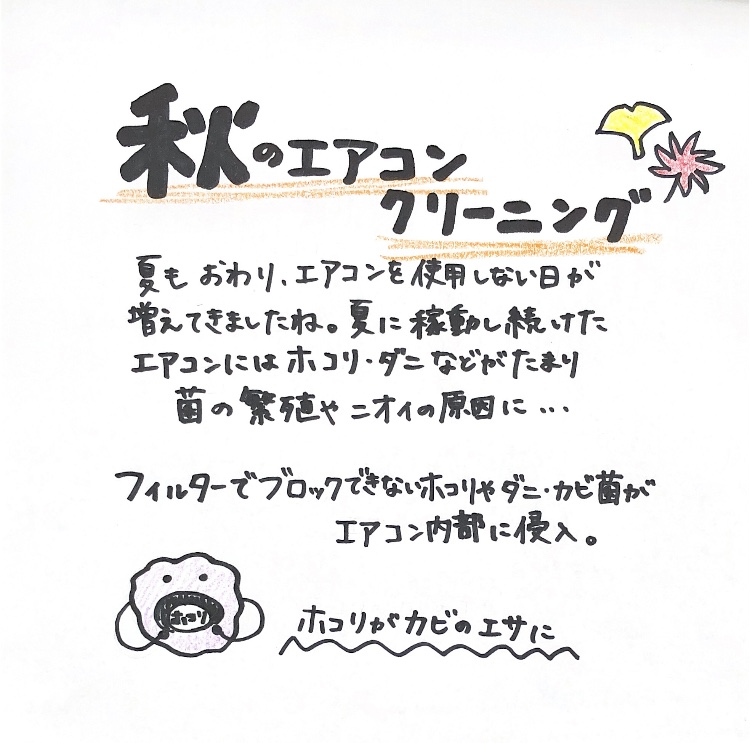 秋のエアコン
クリーニング
夏も おわり、エアコンを使用しない日が
増えてきましたね。夏に稼動し続けた
エアコンには ホコリ・ダニなどがたまり
菌の繁殖や ニオイの原因に…
フィルターでブロックできないホコリやダニ・カビ菌が
エアコン内部に侵入。
ホコリ
ホコリがカビのエサに